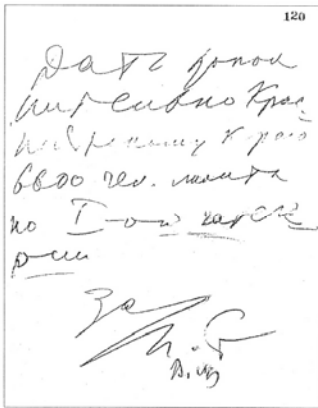 120
Дать допол
нительно Крас
ноярскому краю
6600 чел. лимита
по I-ой катего
рии
За